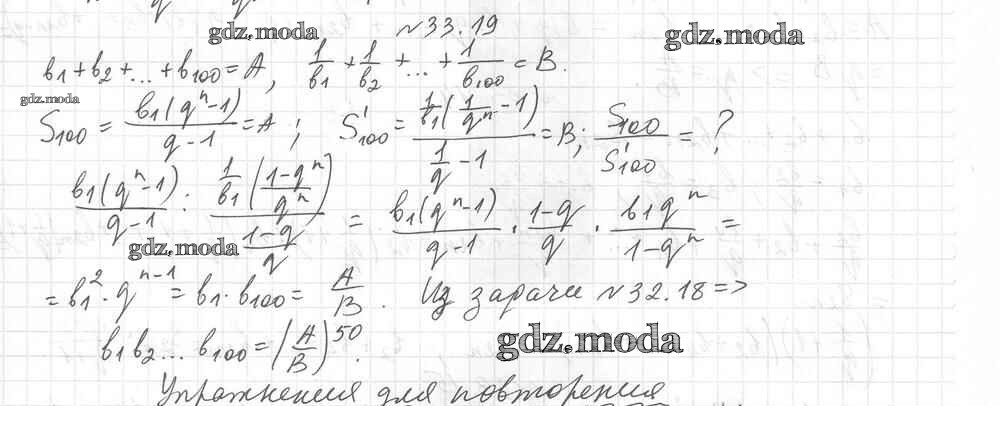 gdz.moda №33.19 gdz.moda
b₁+b₂+...+b₁₀₀=A, 1/b₁ + 1/b₂ + ... + 1/b₁₀₀ = B.
gdz.moda
S₁₀₀ = b₁(qⁿ-1)/(q-1) = A ; S'₁₀₀ = (1/b₁(1/qⁿ - 1))/(1/q - 1) = B; S₁₀₀/S'₁₀₀ = ?
b₁(qⁿ-1)/(q-1) : (1/b₁((1-qⁿ)/qⁿ))/((1-q)/q) = b₁(qⁿ-1)/(q-1) · (1-q)/q · b₁qⁿ/(1-qⁿ) =
gdz.moda
= b₁²·qⁿ⁻¹ = b₁·b₁₀₀ = A/B. Из задачи №32.18 =>
b₁b₂...b₁₀₀ = (A/B)⁵⁰. gdz.moda
Упражнения для повторения